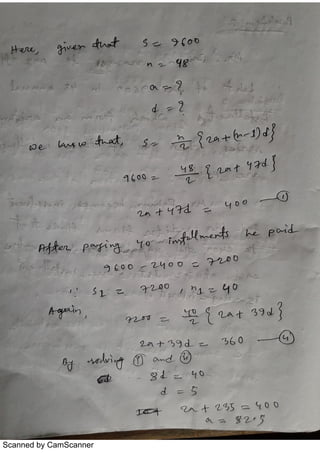 Here, given that S = 9600
n = 48
a = ?
d = ?
we know that, S = n/2 {2a+(n-1)d}
9600 = 48/2 {2a+ 47d}
2a + 47d = 400 —①
After paying 40 installments he paid
9600 - 2400 = 7200
∵ S1 = 7200, n1 = 40
Again,
7200 = 40/2 {2a+ 39d}
2a + 39d = 360 —
By solving ① and
8d = 40
d = 5
2a + 235 = 400
a = 82.5
Scanned by CamScanner